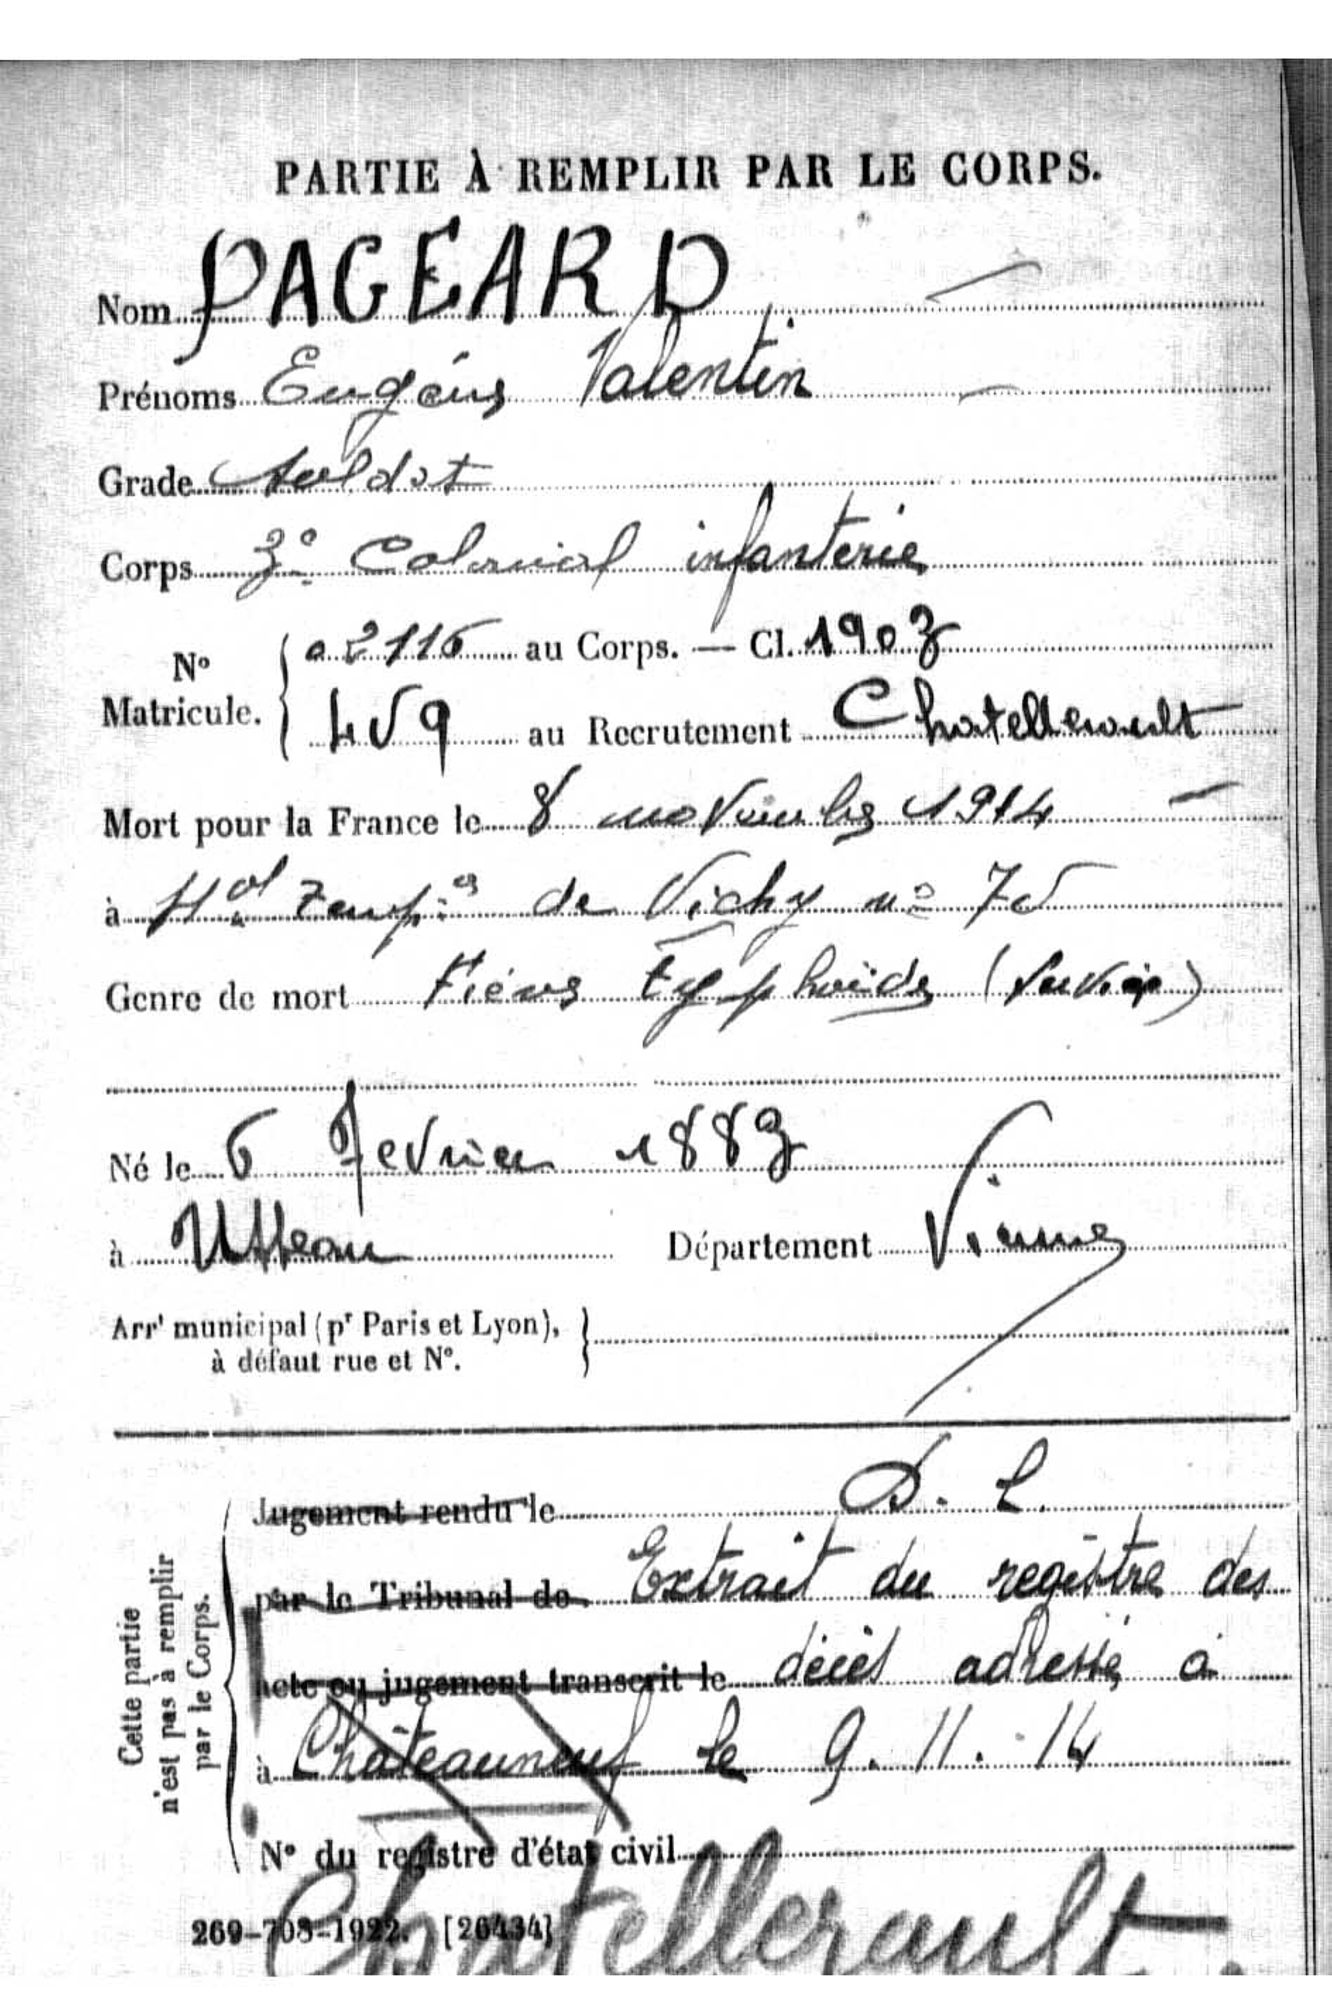 PARTIE À REMPLIR PAR LE CORPS.
Nom PAGEARD
Prénoms Eugène Valentin
Grade Soldat
Corps 3e Colonial infanterie
No Matricule. 02116 au Corps. — Cl. 1903
459 au Recrutement Chatellerault
Mort pour la France le 8 novembre 1914
à Hal temp.re de Vichy no 75
Genre de mort Fièvre typhoïde (suvie)
Né le 6 Fevrier 1883
à Usseau Département Vienne
Arrt municipal (pr Paris et Lyon),
à défaut rue et No.
Cette partie
n'est pas à remplir
par le Corps.
Jugement rendu le D. L.
par le Tribunal de Extrait du registre des
acte ou jugement transcrit le décès adressé à
à Châteauneuf le 9.11.14
No du registre d'état civil
Chatellerault.
269-708-1922. [26434]